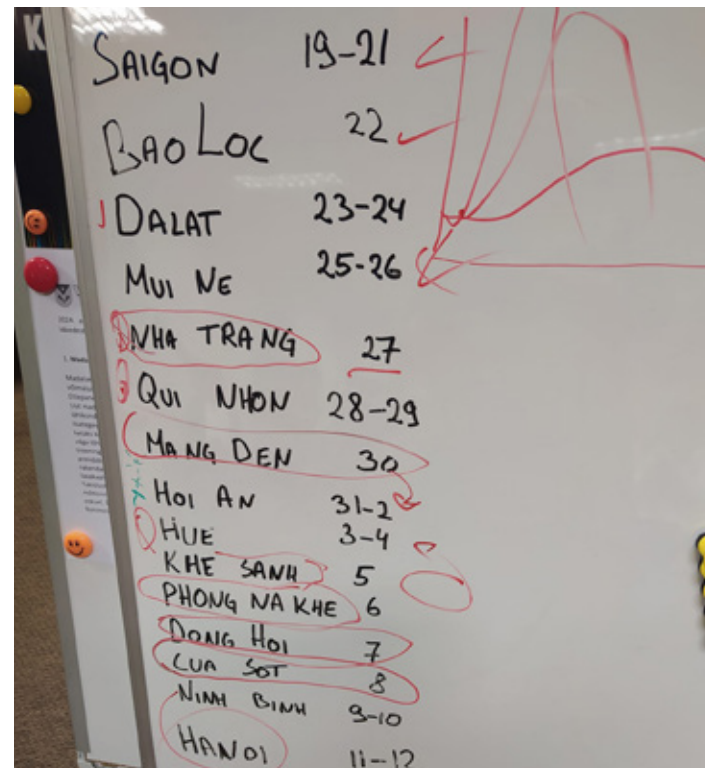 K
SAIGON 19-21
BAO LOC 22
DALAT 23-24
MUI NE 25-26
NHA TRANG 27
QUI NHON 28-29
MANG DEN 30
HOI AN 31-2
HUE 3-4
KHE SANH 5
PHONG NA KHE 6
DONG HOI 7
CUA SOT 8
NINH BINH 9-10
HANOI 11-12